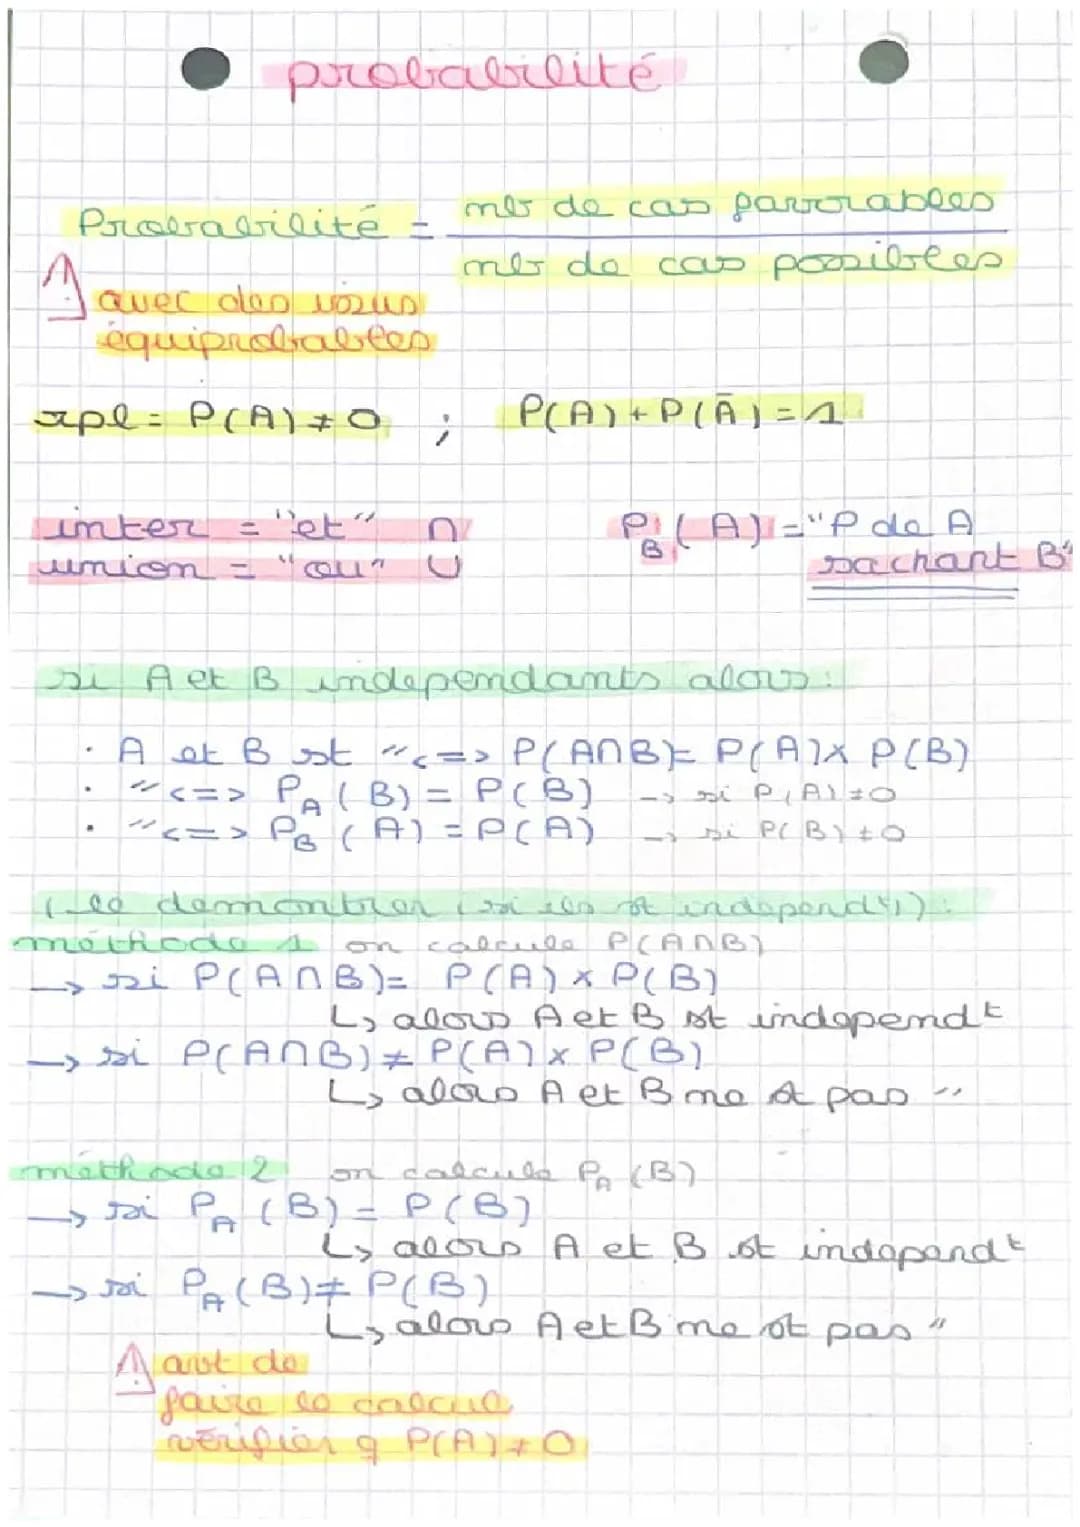 probabilité
Probabilité = nbr de cas favorables
nbr de cas possibles
⚠ avec des issus
équiprobables
xpl = P(A) ≠ 0 ; P(A) + P(Ā) = 1
inter = "et" ∩
union = "ou" ∪
P_B(A) = "P de A
sachant B"
si A et B independants alors :
· A et B st " <=> P(A∩B) = P(A) x P(B)
· " <=> P_A(B) = P(B) -> si P(A) ≠ 0
· " <=> P_B(A) = P(A) -> si P(B) ≠ 0
(le demontrer (si ils st independts) :
méthode 1 on calcule P(A∩B)
-> si P(A∩B) = P(A) x P(B)
↳ alors A et B st independt
-> si P(A∩B) ≠ P(A) x P(B)
↳ alors A et B ne st pas "
méthode 2 on calcule P_A(B)
-> si P_A(B) = P(B)
↳ alors A et B st independt
-> si P_A(B) ≠ P(B)
↳ alors A et B ne st pas "
⚠ avt de
faire le calcul
vérifier q P(A) ≠ 0